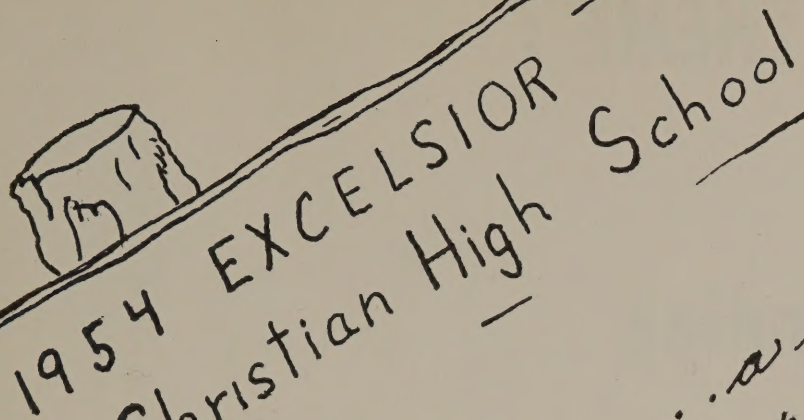 1954 EXCELSIOR
Christian High School
...a